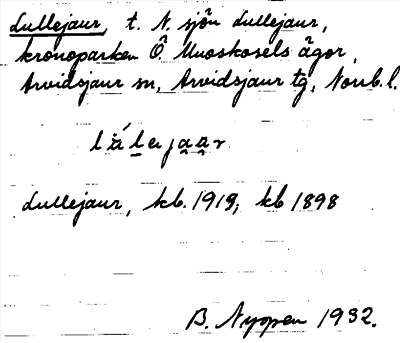 Lullejaur, t. N. sjön Lullejaur,
kronoparken Ö Muoskosels ägor,
Arvidsjaur sn, Arvidsjaur tg, Norrb. l.
Lullejaur, kb. 1919, kb 1898
B. Nyopen 1932.